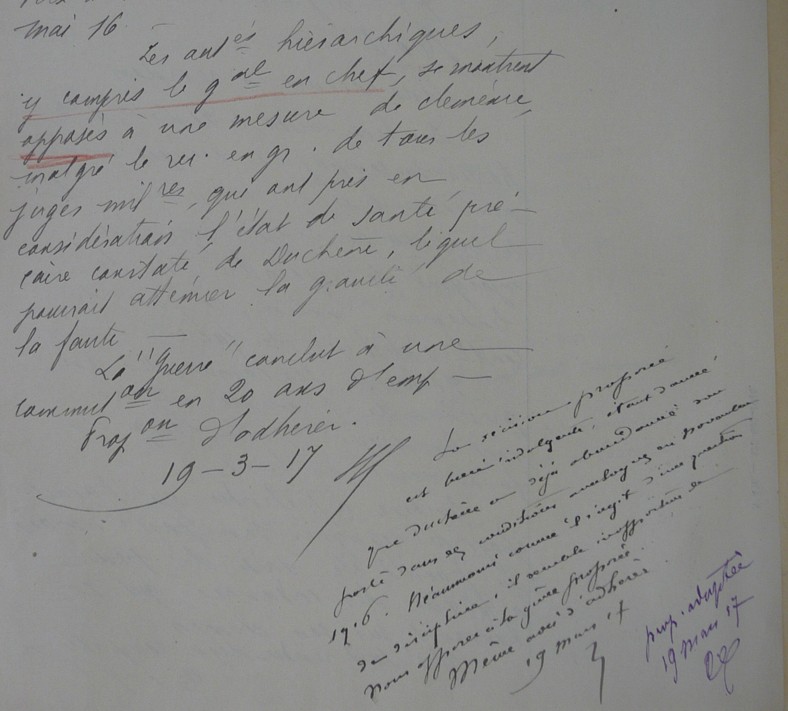 mai 16 —
Les autés hiérarchiques,
y compris le gal en chef, se montrent
opposés à une mesure de clémence,
malgré le rec. en gr. de tous les
juges milres, qui ont pris en
considération l'état de santé pré-
caire constaté, de Duchêne, lequel
pourrait atténuer la gravité de
la faute —
La "Guerre" conclut à une
commuton en 20 ans d'emp —
Propon d'adhérer.
19-3-17
La décision proposée
est bien indulgente, étant donné
que Duchêne a déjà abandonné son
poste dans des conditions analogues en novembre
1916. Néanmoins comme il s'agit d'une question
de discipline, il semble inopportun de
nous opposer à la grâce proposée.
Même avis d'adhérer.
19 mars 17
prop. adoptée
19 mars 17